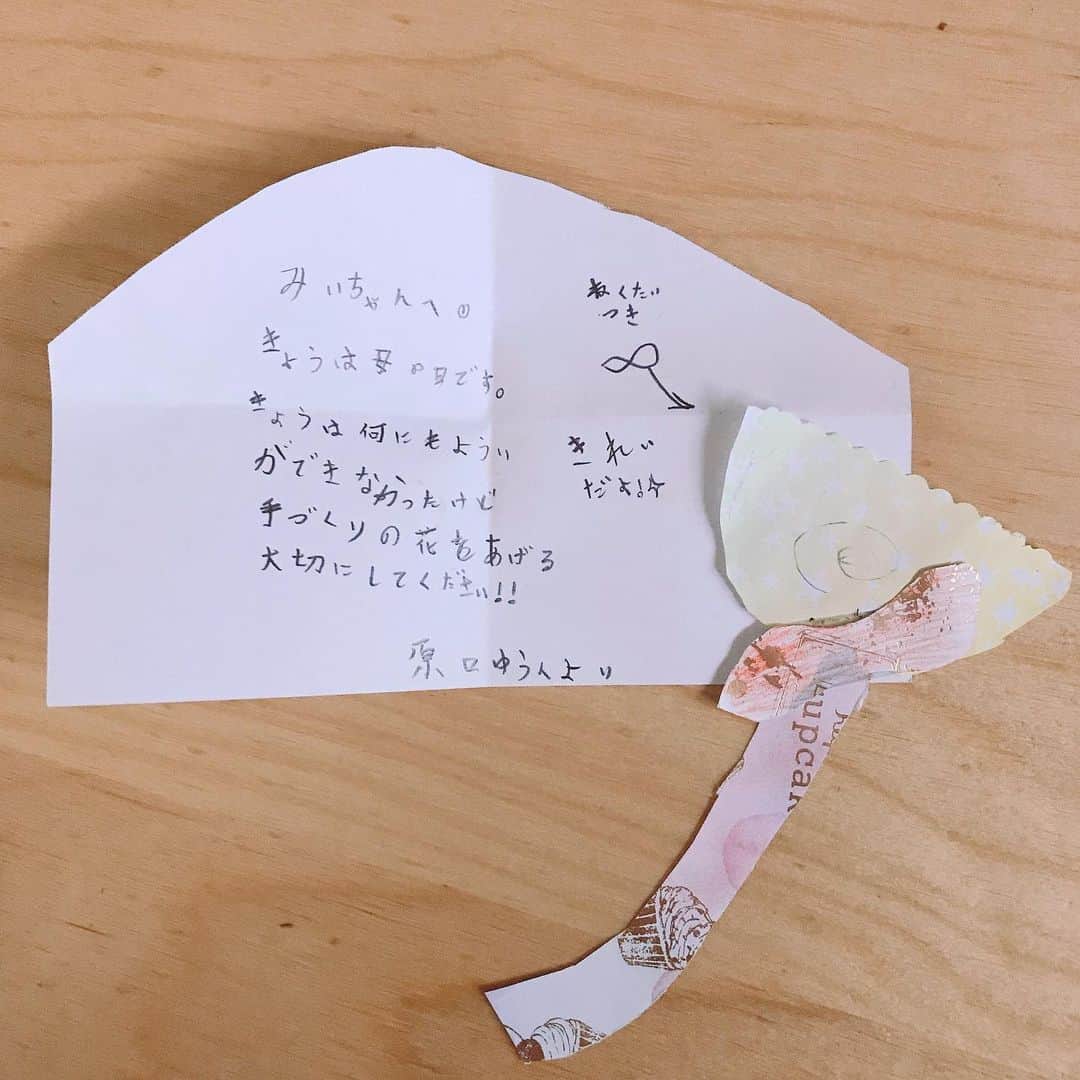 みいちゃんへ。
きょうは母の日です。
きょうは何にもようい
ができなかったけど
手づくりの花をあげる
大切にしてください!!
原口ゆうんより
ねくたい
つき
きれい
だよ!
cupcak